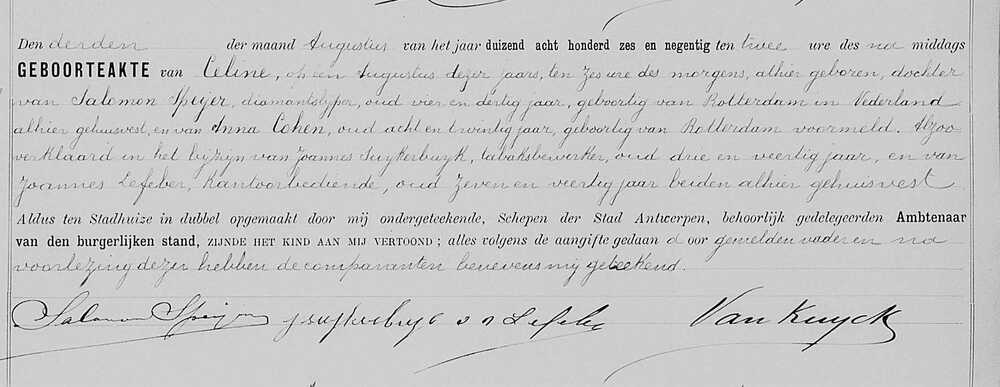 Den derden der maand Augustus van het jaar duizend acht honderd zes en negentig ten twee ure des na middags
GEBOORTEAKTE van Celine, op een Augustus dezer jaars, ten zes ure des morgens, alhier geboren, dochter
van Salomon Speijer, diamantslyper, oud vier en dertig jaar, geboortig van Rotterdam in Nederland
alhier gehuisvest, en van Anna Cohen, oud acht en twintig jaar, geboortig van Rotterdam voormeld. Alzoo
verklaard in het bijzijn van Joannes Suykerbuyk, tabaksbewerker, oud drie en veertig jaar, en van
Joannes Lefeber, kantoorbediende, oud zeven en veertig jaar beiden alhier gehuisvest
Aldus ten Stadhuize in dubbel opgemaakt door mij ondergeteekende, Schepen der Stad Antwerpen, behoorlijk gedelegeerden Ambtenaar
van den burgerlijken stand, ZIJNDE HET KIND AAN MIJ VERTOOND; alles volgens de aangifte gedaan d oor gemelden vader en na
voorlezing dezer hebben de comparanten benevens mij geteekend.
Salomon Speijer J Suykerbuyk Lefeber Van Kuyck